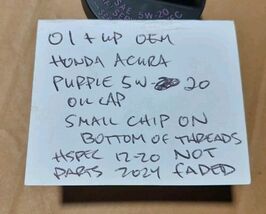 SAE 5W-20
01 + UP OEM
HONDA ACURA
PURPLE 5W-20
OIL CAP
SMALL CHIP ON
BOTTOM OF THREADS
HSPEC 12-20 NOT
PARTS 2024 FADED